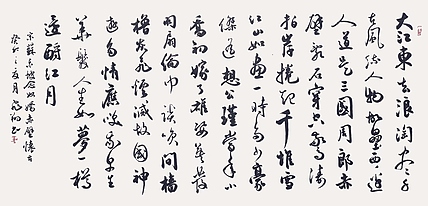 大江東去浪淘尽千
古風流人物故壘西邊
人道是三國周郎赤
壁亂石穿空驚濤
拍岸捲起千堆雪
江山如畫一時多少豪
傑遙想公瑾當年小
喬初嫁了雄姿英發
羽扇綸巾談笑間檣
櫓灰飛煙滅故國神
遊多情應笑我早生
華髮人生如夢一樽
還酹江月
宋蘇東坡念奴嬌赤壁懷古
夏月